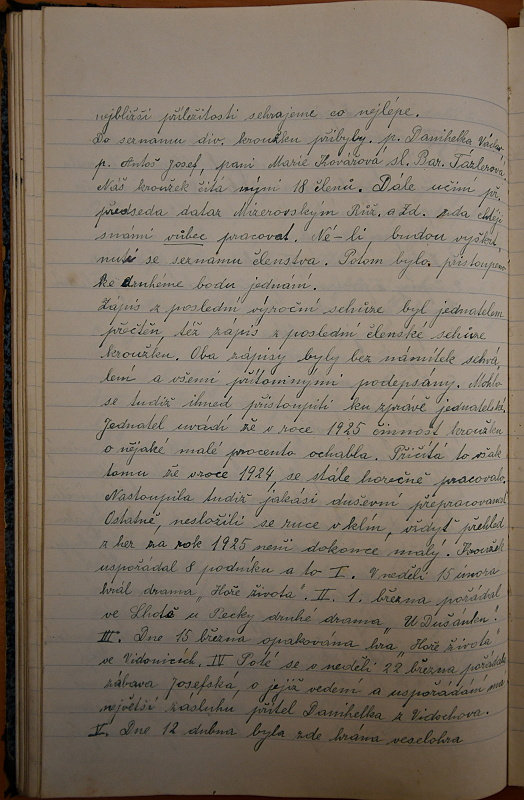 nejbližší příležitosti sehrajeme co nejlépe.
Do seznamu div. kroužku přibyly. p. Danihelka Václav
p. Antoš Josef, paní Marie Kovářová sl. Bar. Tázlerová
Náš kroužek čítá nyní 18 členů. Dále učiní př.
předseda dotaz Mizerovským Růž. a Zd. zda chtějí
s námi vůbec pracovat. Ne-li, budou vyškrt-
nuti se seznamu členstva. Potom bylo přistoupeno
ke druhému bodu jednání.
Zápis z poslední výroční schůze byl jednatelem
přečten, též zápis z poslední členské schůze
kroužku. Oba zápisy byly bez námitek schvá
lení a všemi přítomnými podepsány. Mohlo
se tudíž ihned přistoupiti ku zprávě jednatelské.
Jednatel uvádí že v roce 1925 činnost kroužku
o nějaké malé procento ochabla. Přičítá to však
tomu že v roce 1924, se stále horečně pracovalo.
Nastoupila tudíž jakási duševní přepracovanost
Ostatně, nesložili se ruce v klín, vždyť přehled
z her za rok 1925 není dokonce malý. Kroužek
uspořádal 8 podniků a to I. V neděli 15 února
hrál drama „Hoře života". II. 1. března pořádal
ve Lhotě u Pecky druhé drama „U Dušánků".
III. Dne 15 března opakována hra „Hoře života"
ve Vidonicích. IV Poté se v neděli 22 března pořádala
zábava Josefská, o jejíž vedení a uspořádání má
největší zásluhu přítel Danihelka z Vidochova.
V. Dne 12 dubna byla zde hrána veselohra